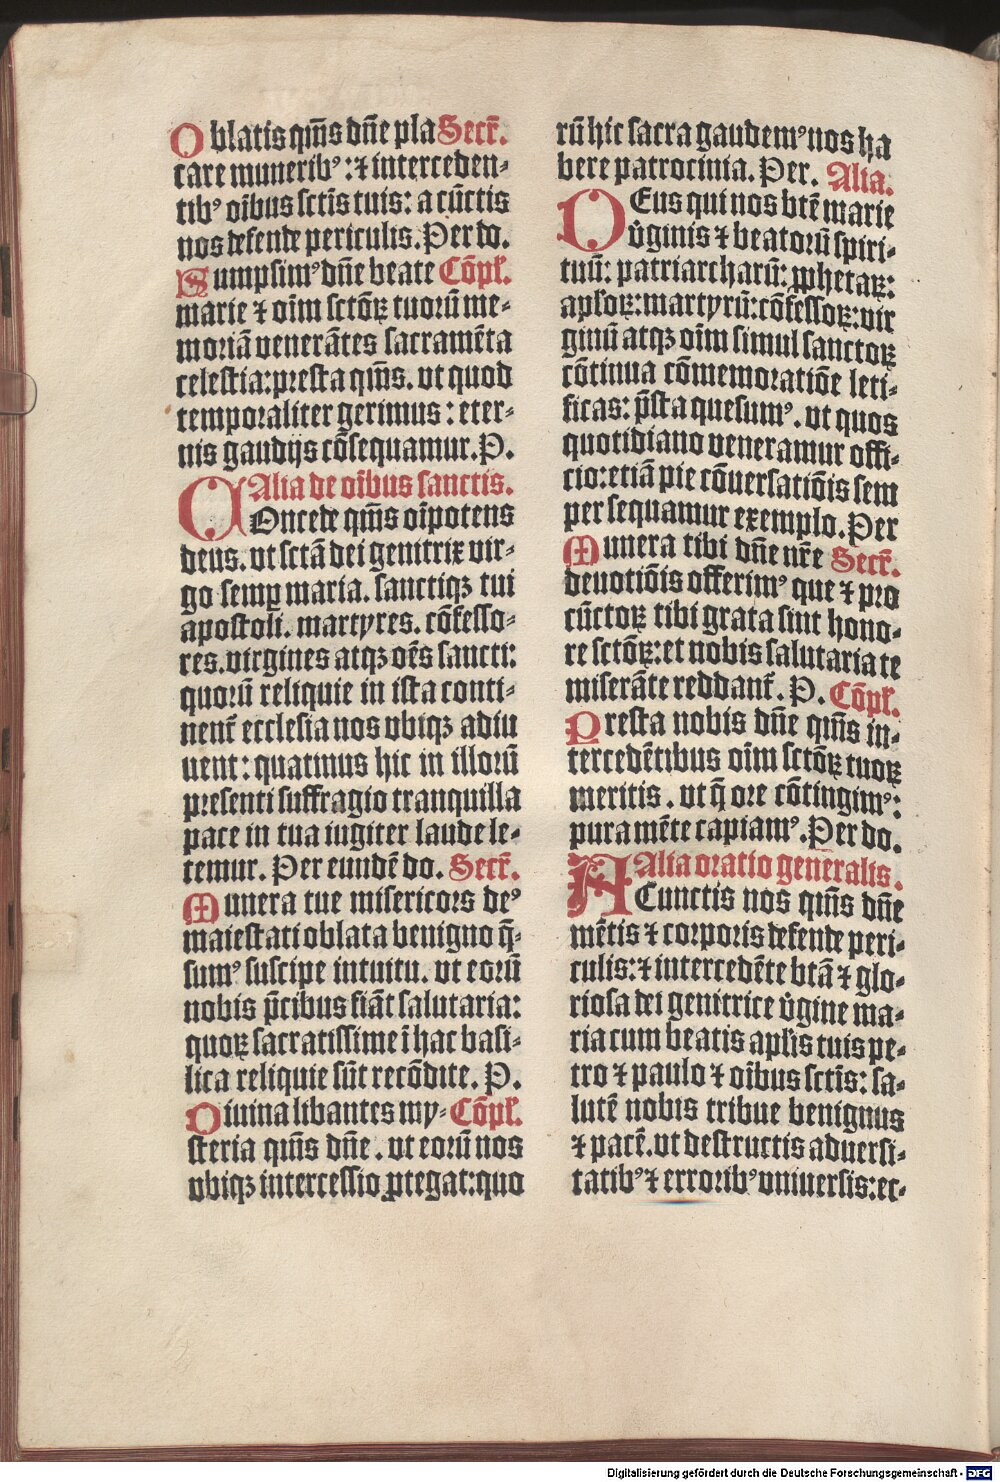 Oblatis qm̄s dn̄e pla Secr̄.
care munerib⁹: ⁊ interceden⸗
tib⁹ oı̄bus sctı̄s tuis: a cūctis
nos defende periculis. Per do.
Sumpsim⁹ dn̄e beate Cōpl̄.
marie ⁊ oı̄m sctōꝝ tuorū me⸗
moriā venerātes sacramēta
celestia: presta qm̄s. vt quod
temporaliter gerimus: eter⸗
nis gaudijs cōsequamur. P.
Alia de oı̄bus sanctis.
COncede qm̄s oı̄potens
deus. vt sctā dei genitrix vir⸗
go semꝑ maria. sanctiqꝫ tui
apostoli. martyres. cōfesso⸗
res. virgines atqꝫ oēs sancti:
quorū reliquie in ista conti⸗
nent̄ ecclesia nos vbiqꝫ adiu
uent: quatinus hic in illorū
presenti suffragio tranquilla
pace in tua iugiter laude le⸗
temur. Per eundē do. Secr̄.
Munera tue misericors de⁹
maiestati oblata benigno q̄⸗
sum⁹ suscipe intuitu. vt eorū
nobis p̄cibus fiāt salutaria:
quoꝝ sacratissime ī hac basi⸗
lica reliquie sūt recōdite. P.
Diuina libantes my⸗ Cōpl̄.
steria qm̄s dn̄e. vt eorū nos
vbiqꝫ intercessio ꝓtegat: quo
rū hic sacra gaudem⁹ nos ha
bere patrocinia. Per. Alia.
DEus qui nos btē marie
v̄ginis ⁊ beatorū spiri⸗
tuū: patriarcharū: ꝓphetaꝝ:
apl̄oꝝ: martyrū: cōfessoꝝ: vir
ginū atqꝫ oı̄m simul sanctoꝝ
cōtinua cōmemoratiōe leti⸗
ficas: p̄sta quesum⁹. vt quos
quotidiano veneramur offi⸗
cio: etiā pie cōuersatiōis sem
per sequamur exemplo. Per
Munera tibi dn̄e nr̄e Secr̄.
deuotiōis offerim⁹ que ⁊ pro
cūctoꝝ tibi grata sint hono⸗
re sctōꝝ: et nobis salutaria te
miserāte reddant̄. P. Cōpl̄.
Presta nobis dn̄e qm̄s in⸗
tercedētibus oı̄m sctōꝝ tuoꝝ
meritis. vt q̄ ore cōtingim⁹:
pura mēte capiam⁹. Per do.
Alia oratio generalis.
A Cunctis nos qm̄s dn̄e
mētis ⁊ corporis defende peri⸗
culis: ⁊ intercedēte btā ⁊ glo⸗
riosa dei genitrice v̄gine ma⸗
ria cum beatis apl̄is tuis pe⸗
tro ⁊ paulo ⁊ oı̄bus sctı̄s: sa⸗
lutē nobis tribue benignus
⁊ pacē. vt destructis aduersi⸗
tatib⁹ ⁊ errorib⁹ vniuersis: ec⸗
Digitalisierung gefördert durch die Deutsche Forschungsgemeinschaft - DFG